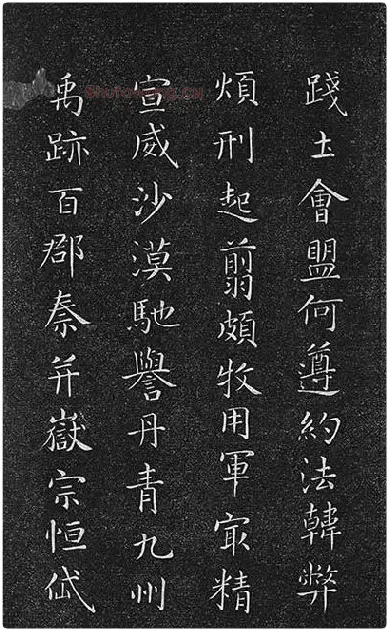 踐土會盟何遵約法韓弊
煩刑起翦頗牧用軍㝡精
宣威沙漠馳譽丹青九州
禹跡百郡秦并嶽宗恒岱